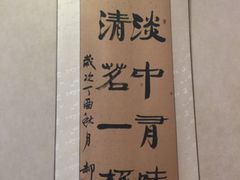 淡中有味
清茗一
歲次丁酉秋月